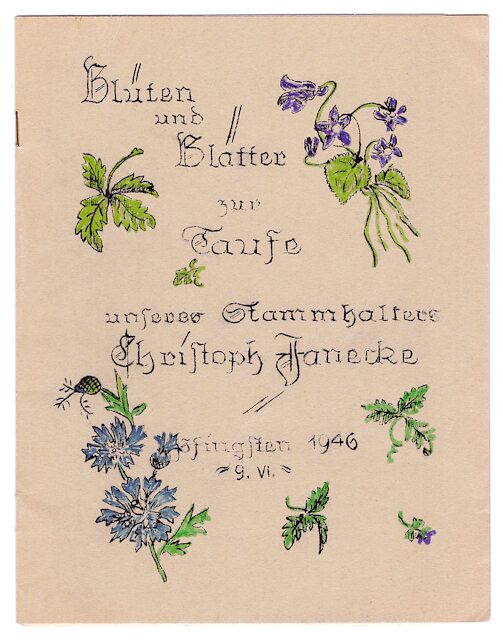 Blüten
und
Blätter
zur
Taufe
unseres Stammhalters
Christoph Janecke
Pfingsten 1946
9. VI.